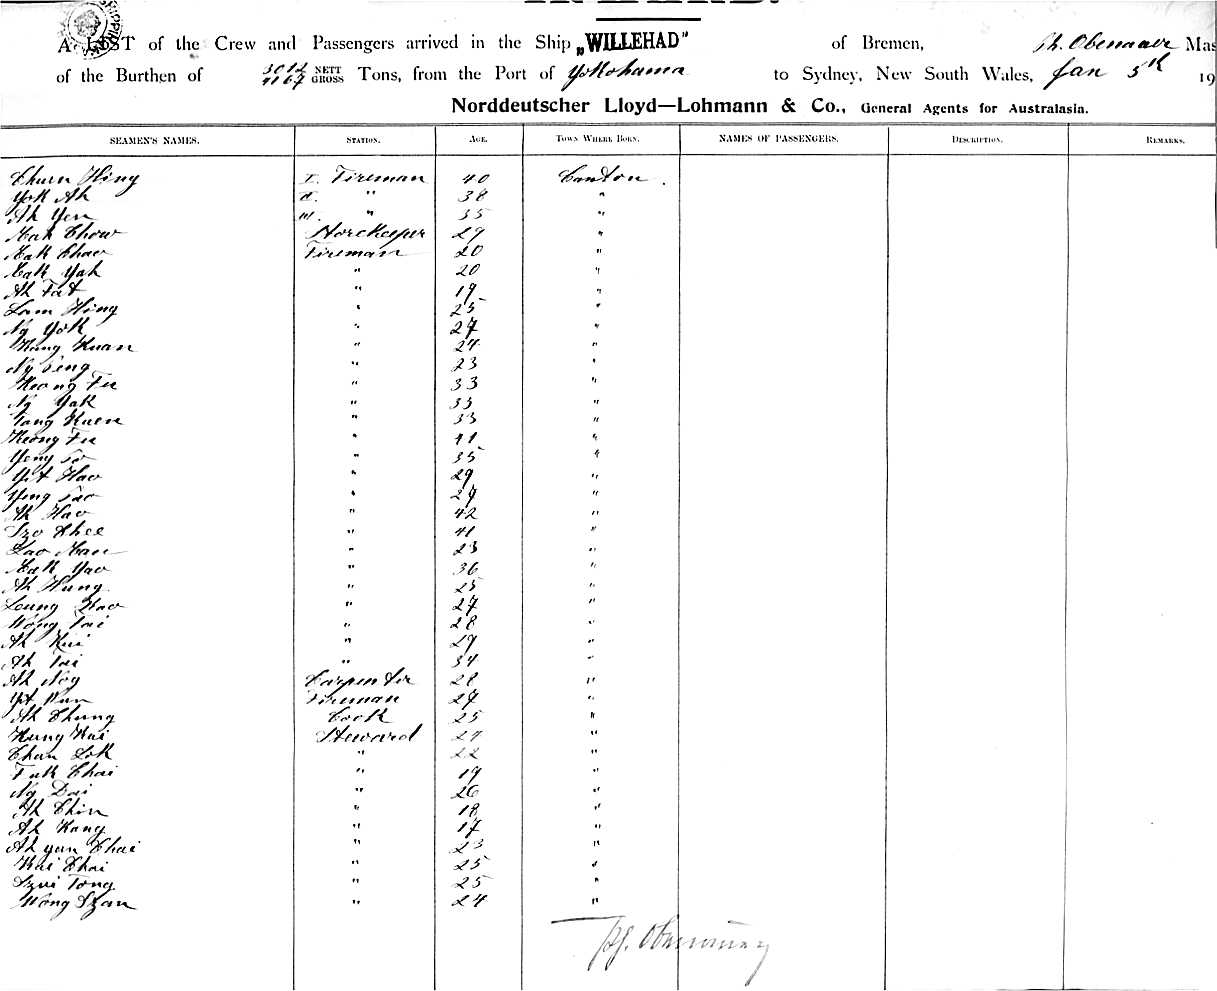 A LIST of the Crew and Passengers arrived in the Ship „WILLEHAD" of Bremen, Ph. Obenauer Mas
of the Burthen of 3012 NETT 4167 GROSS Tons, from the Port of Yokohama to Sydney, New South Wales, Jan 5th 19
Norddeutscher Lloyd—Lohmann & Co., General Agents for Australasia.
SEAMEN'S NAMES. STATION. AGE. TOWN WHERE BORN. NAMES OF PASSENGERS. DESCRIPTION. REMARKS.
Churn Hing I. Fireman 40 Canton.
Yok Ah II. " 38 "
Ah Yen III. " 35 "
Mak Chow Storekeeper 29 "
Mak Chao Fireman 20 "
Mak Yah " 20 "
Ah Fat " 19 "
Lam Hing " 25 "
Ng Yok " 27 "
Kuan " 24 "
Ng Seng " 23 "
Keong Fu " 33 "
Ng Yak " 33 "
Tang Kuen " 33 "
Keong Fu " 41 "
Yong To " 35 "
Yit Hao " 29 "
Yong Tao " 27 "
Ah Hao " 42 "
Szo Chee " 41 "
Lao Man " 23 "
Mak Yao " 36 "
Ah Hung " 25 "
Leung Kao " 27 "
Wong Tai " 28 "
Ah Kui " 29 "
Ah Tai " 34 "
Ah Noy Carpenter 28 "
Yit Wun Fireman 27 "
Ah Chung Cook 25 "
Kung Kai Steward 27 "
Chan Lok " 22 "
Fuk Chai " 19 "
Ng Dai " 26 "
Ah Chin " 18 "
Ah Kang " 17 "
Ah yun Chai " 23 "
Kai Chai " 25 "
Szui Tong " 25 "
Wong Szan " 24 "
Ph. Obenauer